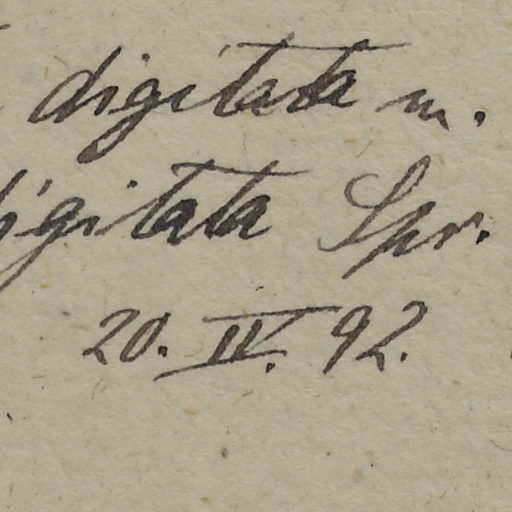 digitata m.
digitata Spr.
20. IV. 92.